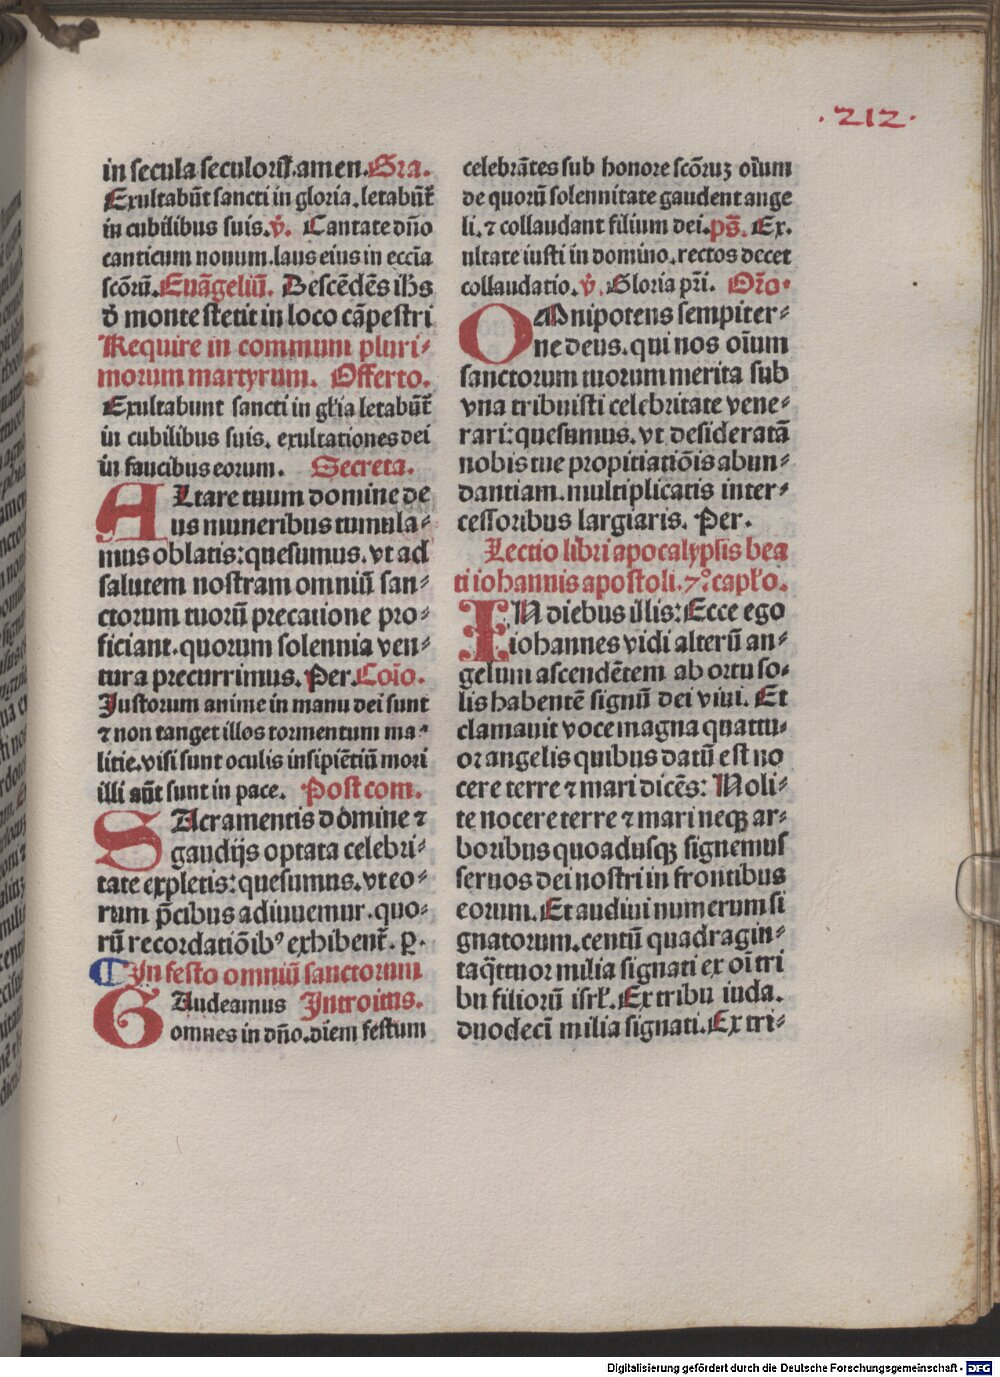 ·212·
in secula seculorū.amen.Gra.
Exultabūt sancti in gloria.letabūt̄
in cubilibus suis.v̄. Cantate dn̄o
canticum nouum.laus eius in eccīa
scōrū.Euāgeliū. Descēdēs ih̄s
d̄ monte stetit in loco cāpestri
Require in communi pluri⸗
morum martyrum. Offerto.
Exultabunt sancti in gl̄ia letabūt̄
in cubilibus suis. exultationes dei
in faucibus eorum. Secreta.
ALtare tuum domine de
us muneribus tumula⸗
mus oblatis:quesumus.vt ad
salutem nostram omniū san⸗
ctorum tuorū precatione pro⸗
ficiant.quorum solennia ven⸗
tura precurrimus.Per.Coīo.
Justorum anime in manu dei sunt
⁊ non tanget illos tormentum ma⸗
litie.visi sunt oculis insipiētiū mori
illi aūt sunt in pace. Postcom.
SAcramentis domine ⁊
gaudijs optata celebri⸗
tate expletis:quesumus.vt eo⸗
rum p̄cibus adiuuemur.quo⸗
rū recordatiōibꝰ exhibent̄.ꝑ.
¶In festo omniū sanctorum
GAudeamus Introitus.
omnes in dn̄o.diem festum
celebrātes sub honore scōruꝫ oīum
de quorū solennitate gaudent ange
li.⁊ collaudant filium dei.ps̄. Ex.
ultate iusti in domino.rectos decet
collaudatio.v̄.Gloria pr̄i. Or̄o.
OMnipotens sempiter⸗
ne deus.qui nos oīum
sanctorum tuorum merita sub
vna tribuisti celebritate vene⸗
rari:quesumus.vt desideratā
nobis tue propitiatiōis abun⸗
dantiam.multiplicatis inter⸗
cessoribus largiaris. Per.
Lectio libri apocalypsis bea
ti iohannis apostoli.7.°capl̄o.
IN diebus illis:Ecce ego
iohannes vidi alterū an⸗
gelum ascendētem ab ortu so⸗
lis habentē signū dei viui. Et
clamauit voce magna quattu⸗
or angelis quibus datū est no
cere terre ⁊ mari dicēs: Noli⸗
te nocere terre ⁊ mari neqꝫ ar⸗
boribus quoadusqꝫ signemus
seruos dei nostri in frontibus
eorum.Et audiui numerum si
gnatorum.centū quadragin⸗
taq̄ttuor milia signati ex oī tri
bu filiorū isrl̄.Ex tribu iuda.
duodecī milia signati.Ex tri⸗
Digitalisierung gefördert durch die Deutsche Forschungsgemeinschaft - DFG